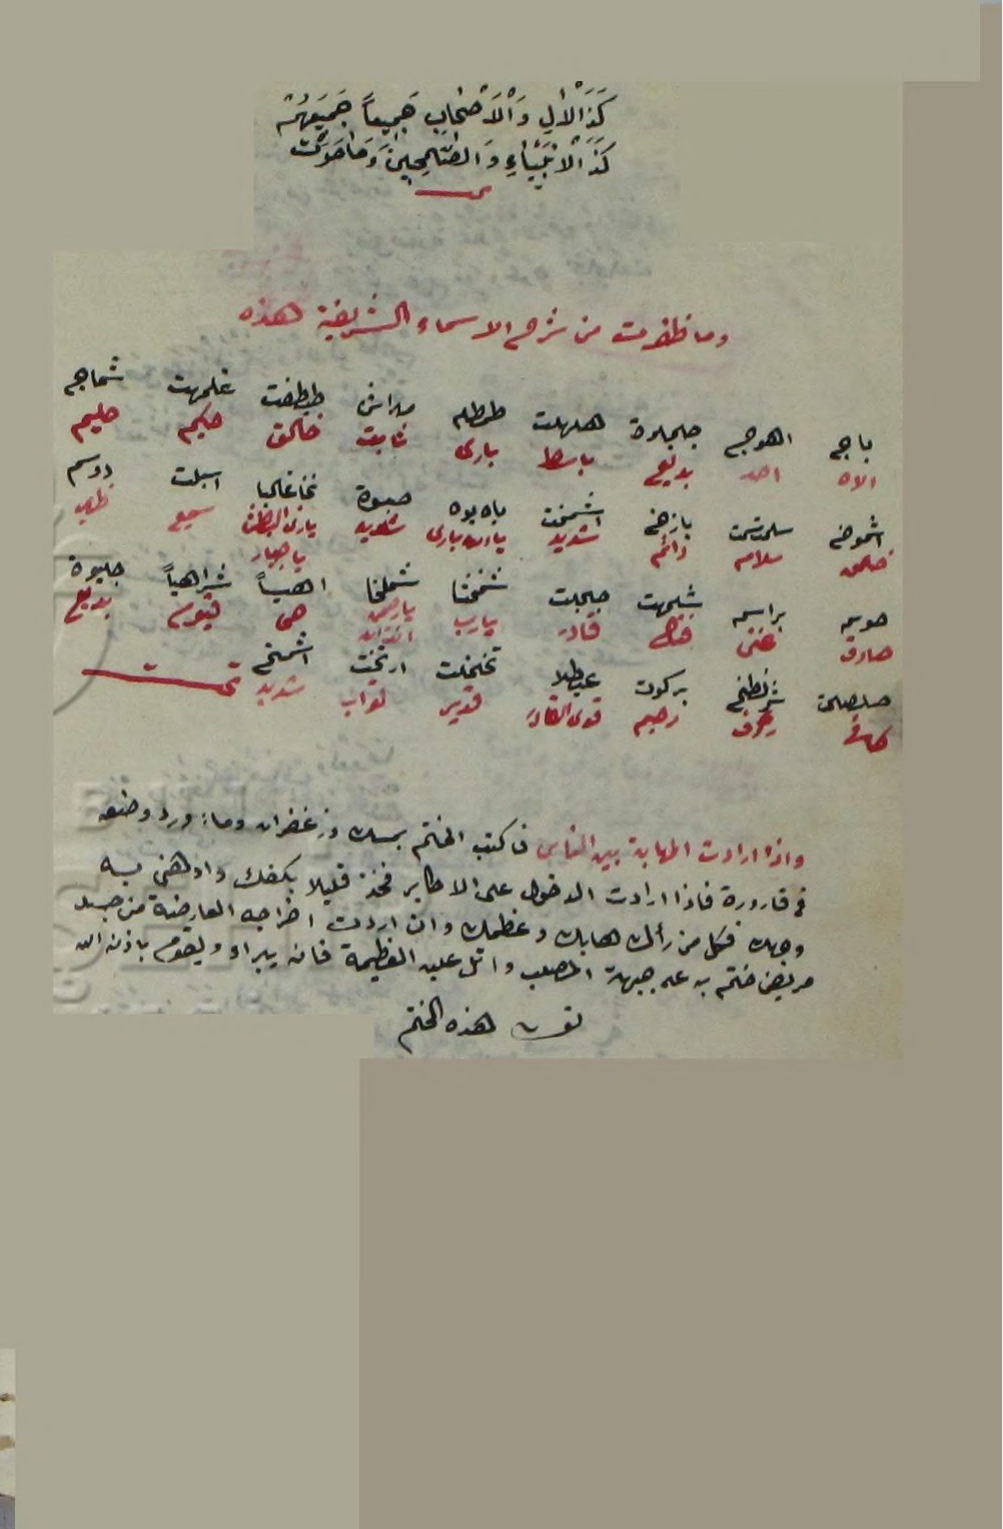 كَذَا الْآلِ وَالْأَصْحَابِ جَمِيعاً جَمِيعَهُمْ
كَذَا الْأَنْبِيَاءِ وَالصَّالِحِينَ وَمَا حَوَتْ
وما ظفرت من شرح الاسماء الشريفة هذه
باج اهوج جلجلوة هلهلت طمطام مهراش طيطغت غلمهت شماج
الاه احد بديع باسط بارى ثابت خالق حكيم حليم
اشموخ سلمت بازخ اشمخت ياه يوه صبوة اسبلت دوسم
خالق سلام دائم شديد شديد يارى البطش سميع
يا جبار
حوسم براسم شلمهت جلجلت شمخثا شملخا اهياً شراهياً جليوة
صادق غنى فتاح قادر يارب حى قيوم بديع
صلصلت بركوت عيطلا تخملت ارتخت اشمخ
كافى رؤف رحيم قوى القادر قدير تواب شديد تمت
واذا اردت المهابة بين الناس فاكتب الختم بمسك وزعفران وماء ورد وضعه
فى قارورة فاذا اردت الدخول على الاكابر فخذ قليلا بكفك وادهن به
وجهك فكل من رآك هابك وعظمك وان اردت اخراج العارضة من جسد
مريض ختم به على جبهة المصاب واتل عليه العظيمة فانه يبراء ويقوم باذن الله
هذه الختم